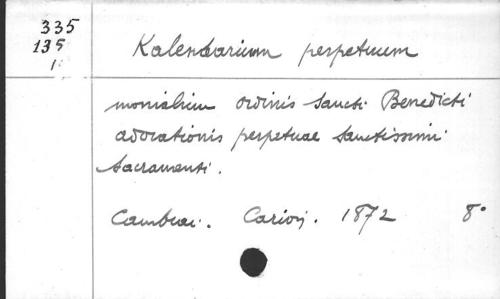 335
135
1
Kalendarium perpetuum
monialium ordinis Sancti Benedicti
adorationis perpetuae Sanctissimi
Sacramenti.
Cambrai. Carion. 1872 8°